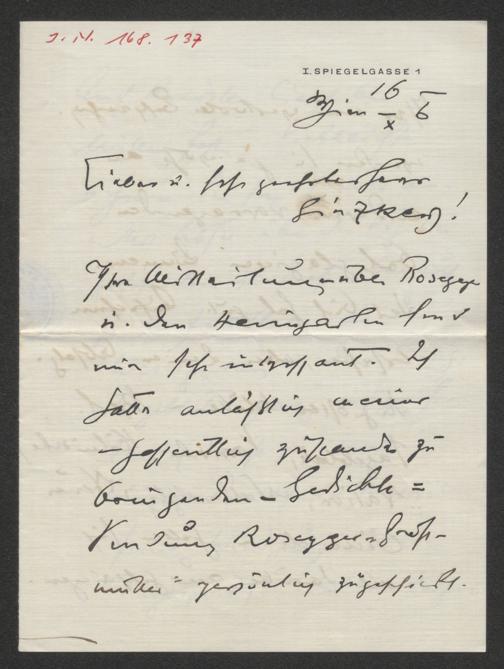 I.N. 168.137
I. SPIEGELGASSE 1
Wien 16/X 6
Lieber u. sehr geehrter Herr
Ginzkey!
Ihre Mitteilung über Rosegger
u. den Heimgarten sind
mir sehr interessant. Ich
hatte anläßlich meiner
– hoffentlich zustande zu
bringenden – Gedichte =
Rosegger =
mutter = persönlich